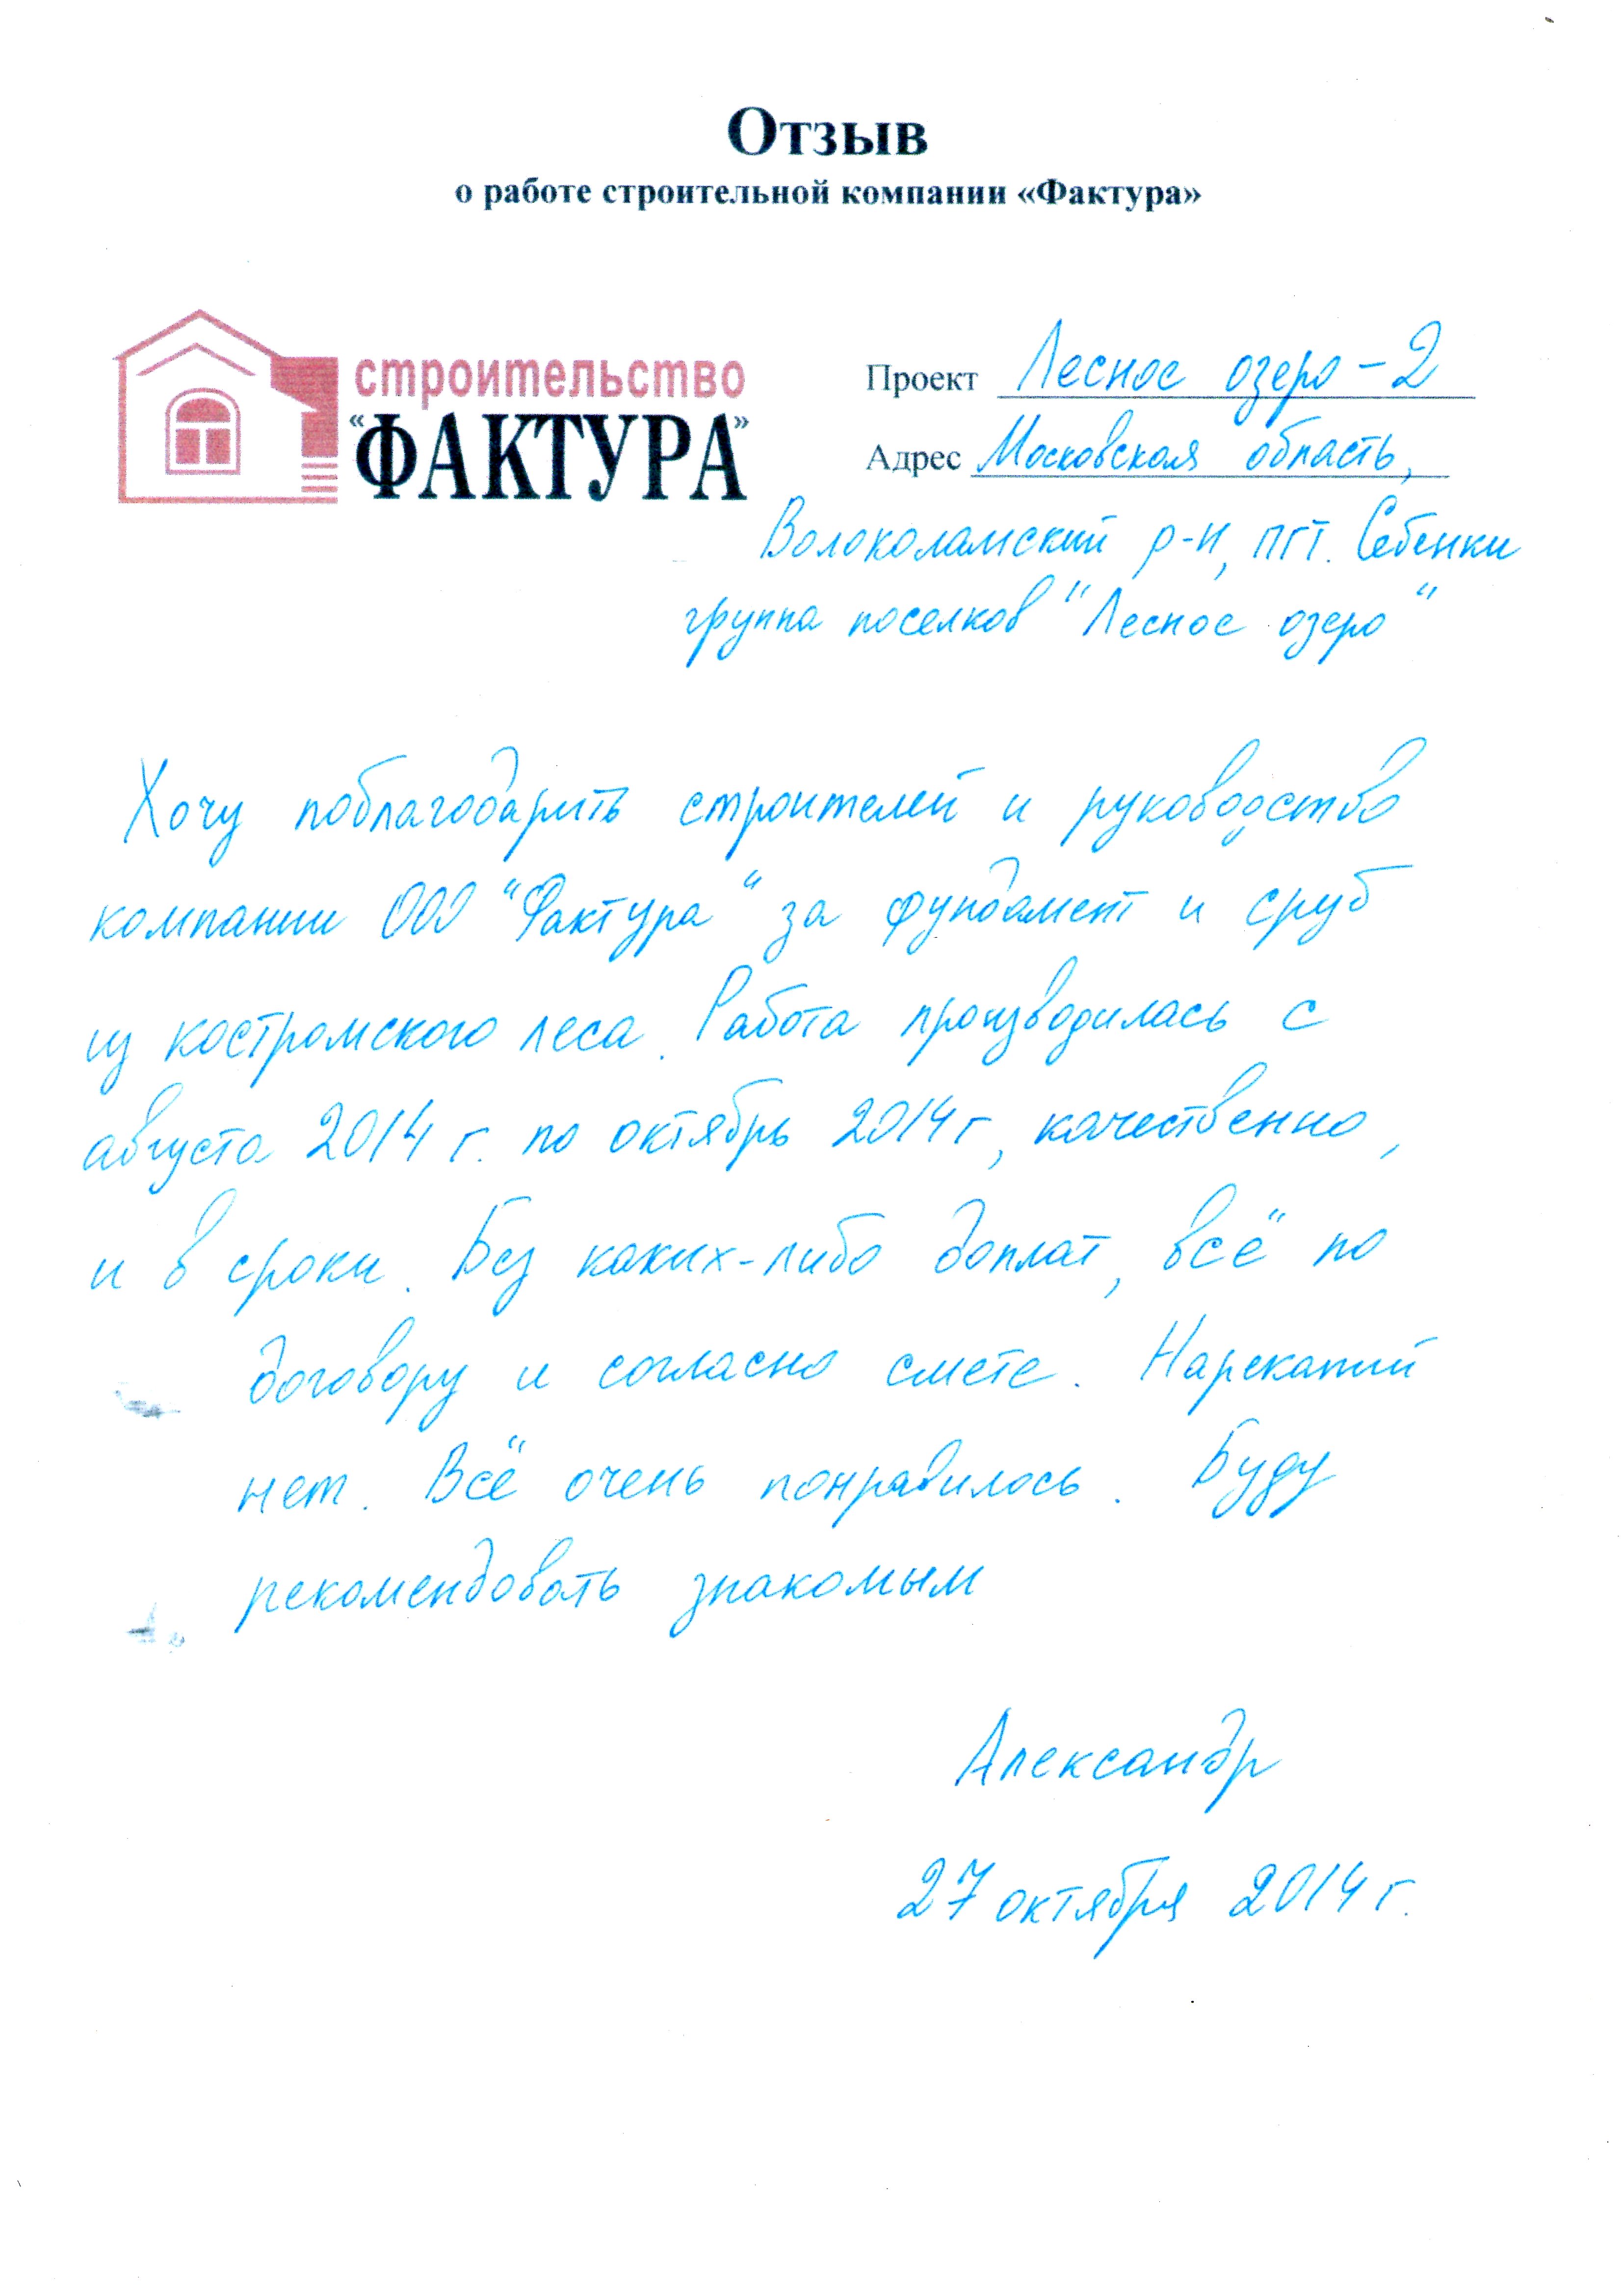 Отзыв
о работе строительной компании «Фактура»
строительство
"ФАКТУРА"
Проект Лесное озеро-2
Адрес Московская область,
Волоколамский р-н, пгт. Себенки
группа поселков "Лесное озеро"
Хочу поблагодарить строителей и руководство
компании ООО "Фактура" за фундамент и сруб
из костромского леса. Работа производилась с
августа 2014 г. по октябрь 2014 г, качественно,
и в сроки. Без каких-либо доплат, всё по
договору и согласно смете. Нареканий
нет. Всё очень понравилось. Буду
рекомендовать знакомым
Александр
27 октября 2014 г.